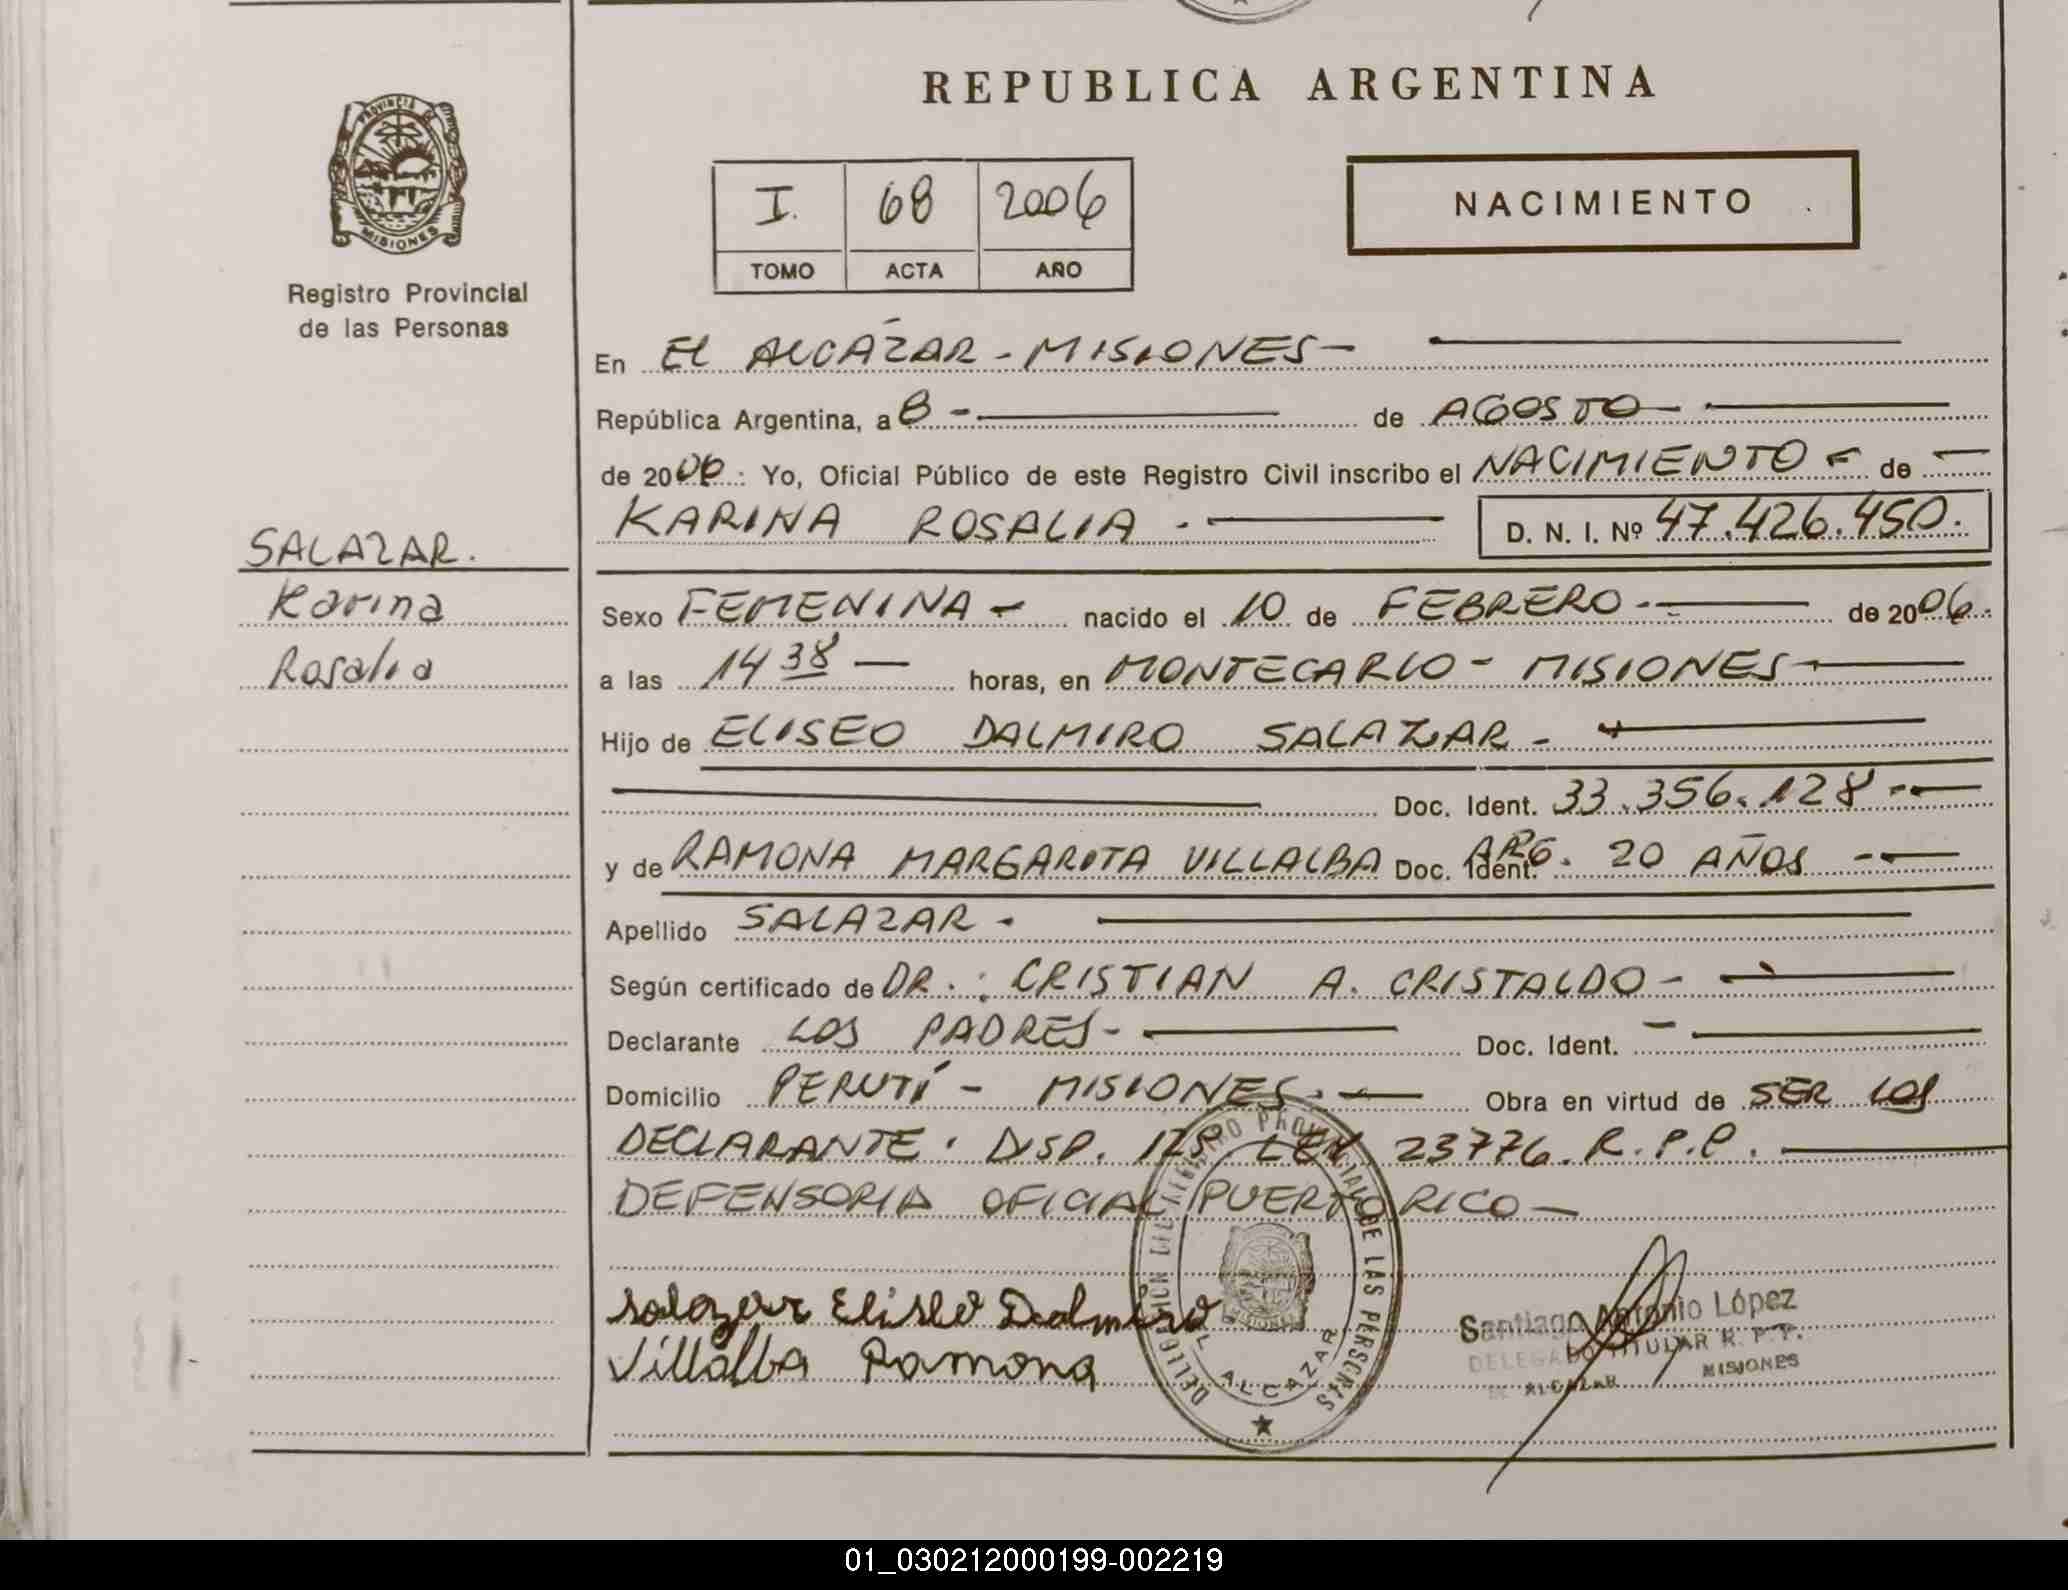 REPUBLICA ARGENTINA
PROVINCIA DE
MISIONES
Registro Provincial
de las Personas
I. 68 2006
TOMO ACTA AÑO
NACIMIENTO
En EL ALCÁZAR - MISIONES -
República Argentina, a 8 - de AGOSTO -
de 2006 : Yo, Oficial Público de este Registro Civil inscribo el NACIMIENTO - de -
KARINA ROSALIA . - D. N. I. Nº 47.426.450.
SALAZAR.
Karina
Rosalia
Sexo FEMENINA - nacido el 10 de FEBRERO - de 2006.
a las 14 38 - horas, en MONTECARLO - MISIONES -
Hijo de ELISEO DALMIRO SALAZAR -
Doc. Ident. 33.356.128 -
y de RAMONA MARGARITA VILLALBA Doc. Ident. ARG. 20 AÑOS -
Apellido SALAZAR -
Según certificado de DR. : CRISTIAN A. CRISTALDO -
Declarante LOS PADRES - Doc. Ident. -
Domicilio PERUTÍ - MISIONES. - Obra en virtud de SER LOS
DECLARANTE. DISP. 125 LEY 23776. R.P.P.
DEFENSORIA OFICIAL PUERTO RICO -
Salazar Eliseo Dalmiro
Villalba Ramona
REGISTRO PROVINCIAL DE LAS PERSONAS
EL ALCAZAR
MISIONES
Santiago Antonio López
DELEGADO TITULAR R. P. P.
ALCAZAR MISIONES
01_030212000199-002219